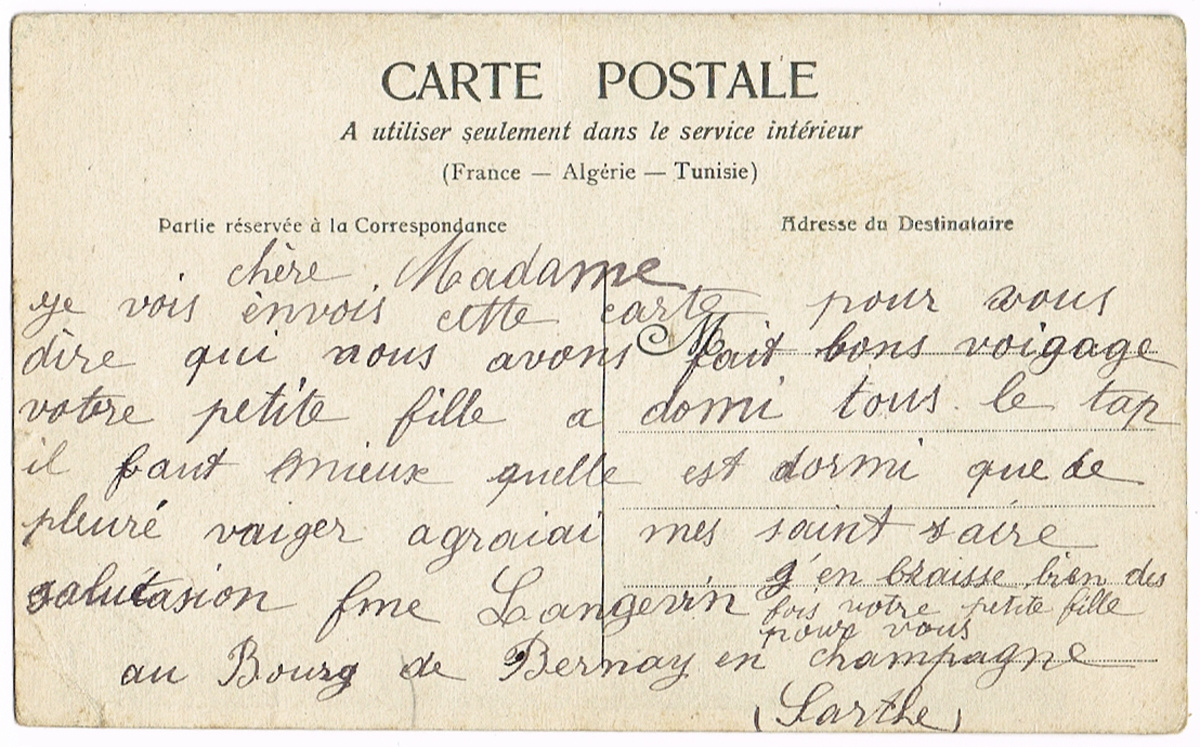 CARTE POSTALE
A utiliser seulement dans le service intérieur
(France — Algérie — Tunisie)
Partie réservée à la Correspondance
Adresse du Destinataire
chère Madame
je vois envois cette carte pour vous
M
dire qui nous avons fait bons voigage
votre petite fille a domi tous le tap
il faut mieux quelle est dormi que de
pleuré vaiger agraiai mes saint saire
salutasion fme Langevin
g'en braisse bien des
fois votre petite fille
pour vous
au Bourg de Bernay en champagne
(Sarthe)